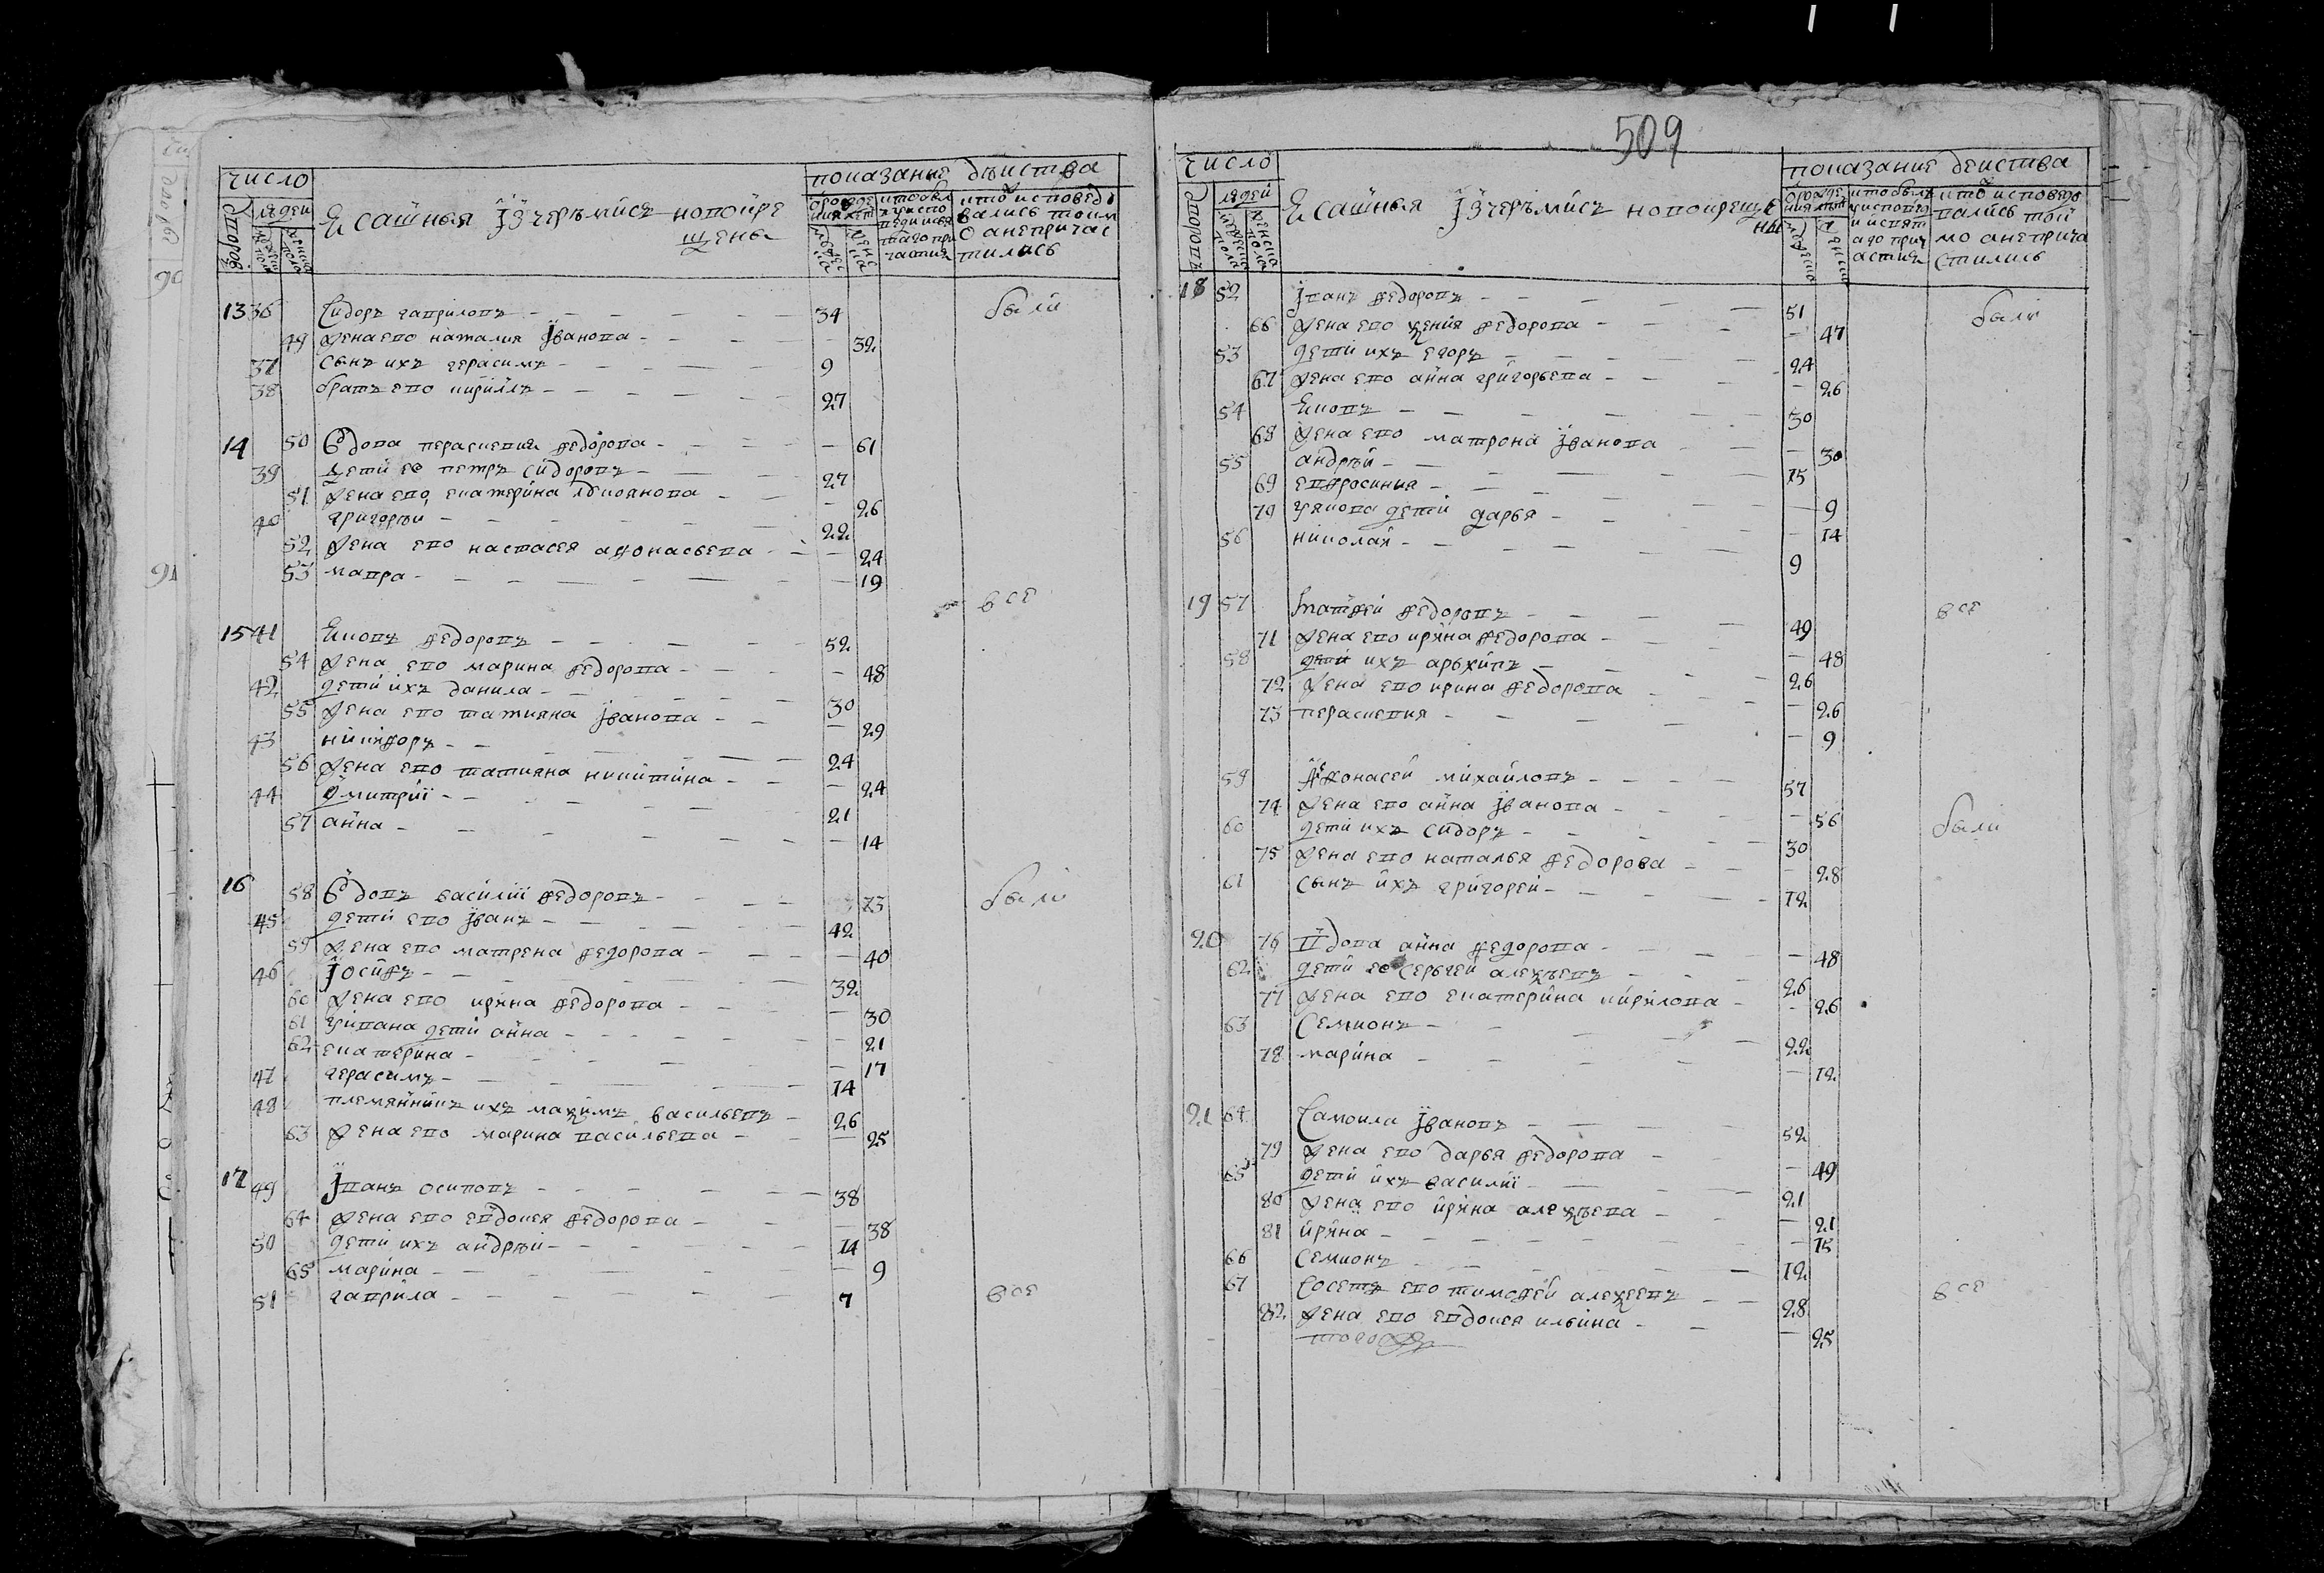 число
показание дѣиства
дворовъ
людей
мужеска пола
женска пола
Ясашныя Їзчеръмисъ новокре
щены
мужеска
женска
кто исповеди
вались токм
о анепричас
тились
13 36 Сидоръ гавриловъ 34 были
49 жена ево наталия Їванова 32
37 сынъ ихъ герасимъ 9
38 братъ ево кирилъ 27
14 50 Вдова парасковия федорова 61
39 дети ео петръ сидоровъ 27
51 жена ево екатерина
40 григорѣй 26 22
52 жена ево настасея афонасьева 24
53 мавра 19
все
15 41 Яковъ федоровъ 52
54 жена ево марина федорова 48
42 дети ихъ данила 30
55 жена ево татияна Їванова 29
43 никифоръ 24
56 жена ево татияна никитина 24
44 дмитрїй 21
57 анна 14
16 58 Вдовъ василїй федоровъ 73 были
45 дети ево Їванъ 42
59 жена ево матрена федорова 40
46 Їосифъ 32
60 жена ево ирина федорова 30
61 уивана дети анна 21
62 екатерина 17
47 герасимъ 14
48 племянникъ ихъ маѯимъ васильевъ 26
63 жена ево марина васильева 25
17 49 Їванъ осиповъ 38
64 жена ево евдокея федорова 38
50 дети ихъ андрѣй 14
65 марина 9
51 гаврила 7 все
509
число
показание деиства
дворовъ
людей
мужеска пола
женска пола
Ясашныя Їзчеръмисъ новокреще
ны
кто исповедо
вались той
мо анеприча
стились
18 52 Їванъ федоровъ 51 были
66 жена ево ѯения федорова 47
53 дети ихъ егоръ 24
67 жена ево анна григорьева 26
54 Яковъ 30
68 жена ево матрона Їванова 30
55 андрѣй 15
69 епфросиния 9
70 уякова дети дарья 14
56 николай 9
19 57 матфей федоровъ 49 все
71 жена ево ирина федорова 48
58 дети ихъ архипъ 26
72 жена ево ирина федорова 26
73 парасковия 9
59 Афонасей михайловъ 57
74 жена ево анна Їванова 56 были
60 дети ихъ сидоръ 30
75 жена ево наталья федорова 28
61 сынъ ихъ григорей 12
20 76 Вдова анна федорова 48
62 дети ео сергей алеѯѣевъ 26
77 жена ево екатерина кирилова 26
63 Семионъ 22
78 марина 12
21 64 Самоила Ївановъ 52
79 жена ево дарья федорова 49
65 дети ихъ василїй 21
80 жена ево ирина алеѯѣева 21
81 ирина 15
66 Семионъ 12
67 Соседъ ево тимофей алеѯеевъ 28 все
82 жена ево евдокея ильина 25